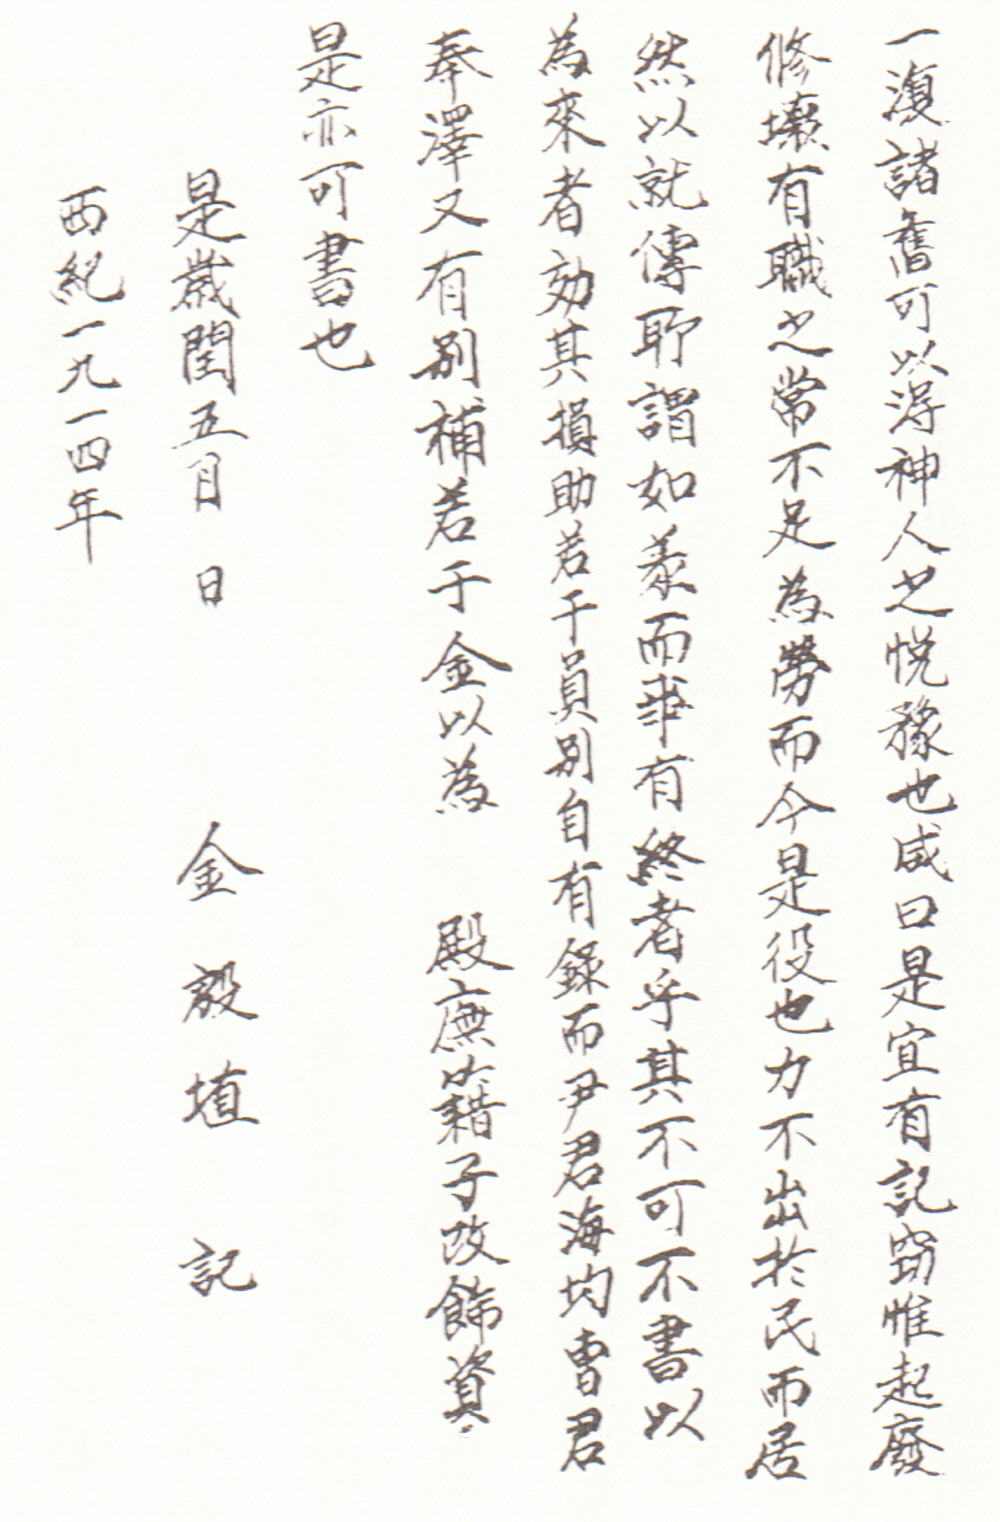 一復諸舊可以得神人之悅豫也咸曰是宜有記竊惟起廢
修壞有職之常不足為勞而今是役也力不出於民而居
然以就傳所謂如柰而畢有終者乎其不可不書以
為來者効其損助若干員別自有錄而尹君海均曺君
奉澤又有別補若于金以為 殿廡籍子改飾資
是亦可書也
是歲閏五月 日 金毅埴 記
西紀一九一四年